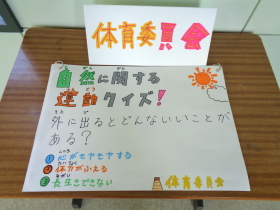 体育委員会
自然に関する
運動クイズ!
外に出るとどんないいことが
ある?
①心がモヤモヤする
②体力がふえる
③長生きできない
体育委員会